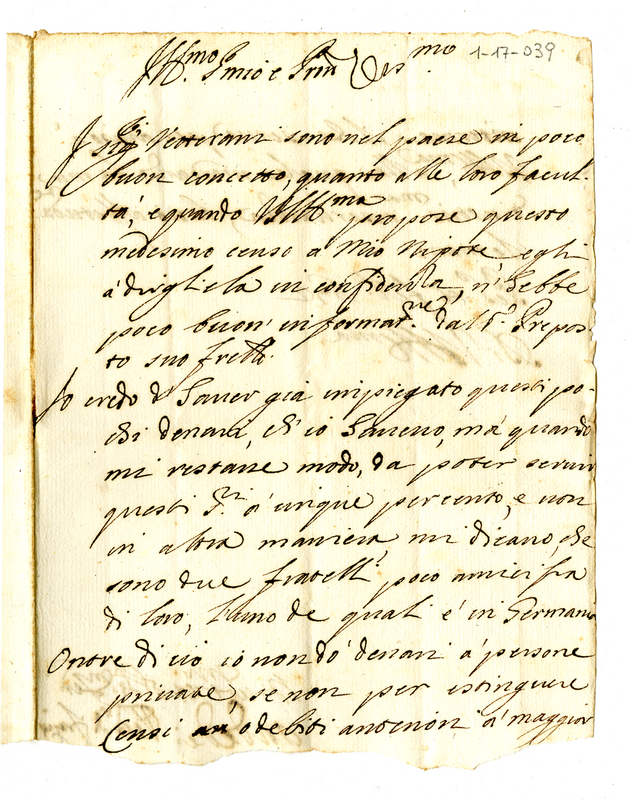 Ill.mo Sig.r mio e Pron Oss.mo 1-17-039
I Sig.ri Veterani sono nel paese in poco
buon concetto, quanto alle loro facul-
tà, e quando VS Ill.ma propose questo
medesimo censo a Mio Nipote, egli
à dirgliela in confidenza, n'hebbe
poco buon' informat.ne dal S.r Prepos-
to suo frello.
Io credo d'haver già impiegato questi po-
chi denari, ch'io havevo, mà quando
mi restasse modo, da poter servir
questi S.ri à cinque per cento, e non
in altra maniera mi dicano, che
sono due fratelli poco amici fra
di loro, l'uno de quali è in Germania
Ontre di cio io non dò denari à persone
private, se non per estinguere
Censi o debiti anteriori à maggior